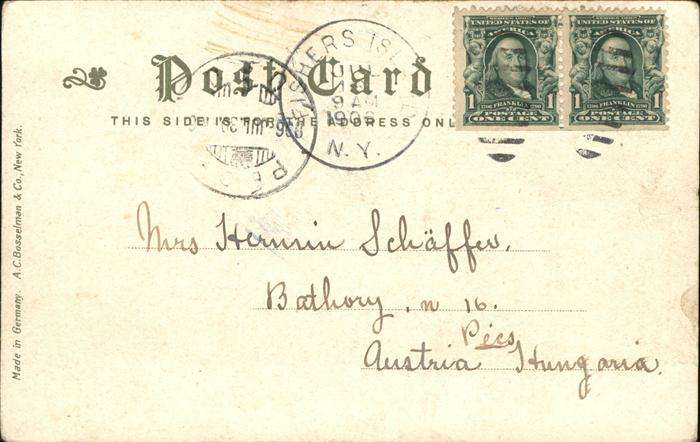 Post Card
THIS SIDE IS FOR THE ADDRESS
FISHERS ISL
9 AM
N.Y.
SERIES 1902
UNITED STATES OF
AMERICA
1 FRANKLIN 1
POSTAGE
ONE CENT
UNITED STATES OF
AMERICA
1 FRANKLIN 1
POSTAGE
ONE CENT
Mrs Hermin Schäffer.
Bathory. n 16.
Pécs
Austria Hungaria.
Made in Germany. A. C. Bosselman & Co., New York.